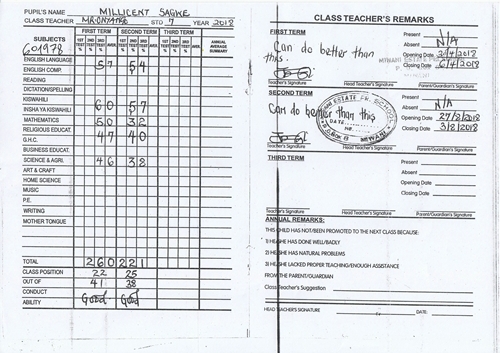 PUPIL'S NAME MILLICENT
CLASS TEACHER STD 7 YEAR 2018
SUBJECTS FIRST TERM SECOND TERM THIRD TERM ANNUAL AVERAGE SUMMARY
1ST TEST % 2ND TEST % AVER. 1ST TEST % 2ND TEST % AVER. 1ST TEST % 2ND TEST % AVER.
ENGLISH LANGUAGE 57 54
ENGLISH COMP.
READING
DICTATION/SPELLING
KISWAHILI 60 57
INSHA YA KISWAHILI
MATHEMATICS 50 32
RELIGIOUS EDUCAT.
G.H.C. 47 40
BUSINESS EDUCAT.
SCIENCE & AGRI. 46 38
ART & CRAFT
HOME SCIENCE
MUSIC
P.E.
WRITING
MOTHER TONGUE
TOTAL 260 221
CLASS POSITION 22 25
OUT OF 41 38
CONDUCT
ABILITY Good Good
CLASS TEACHER'S REMARKS
FIRST TERM
Can do better than this.
Present
Absent N/A
Opening Date
Closing Date 6/4/2018
Teacher's Signature Head Teacher's Signature Parent/Guardian's Signature
SECOND TERM
Can do better than this
Present
Absent N/A
Opening Date
Closing Date 3/8/2018
Teacher's Signature Head Teacher's Signature Parent/Guardian's Signature
THIRD TERM
Present
Absent
Opening Date
Closing Date
Teacher's Signature Head Teacher's Signature Parent/Guardian's Signature
ANNUAL REMARKS:
THIS CHILD HAS/NOT/BEEN PROMOTED TO THE NEXT CLASS BECAUSE:
1) HE/SHE HAS DONE WELL/BADLY
2) HE/SHE HAS NATURAL PROBLEMS
3) HE/SHE LACKED PROPER TEACHING/ENOUGH ASSISTANCE
FROM THE PARENT/GUARDIAN
Class Teacher's Suggestion
HEAD TEACHER'S SIGNATURE DATE: